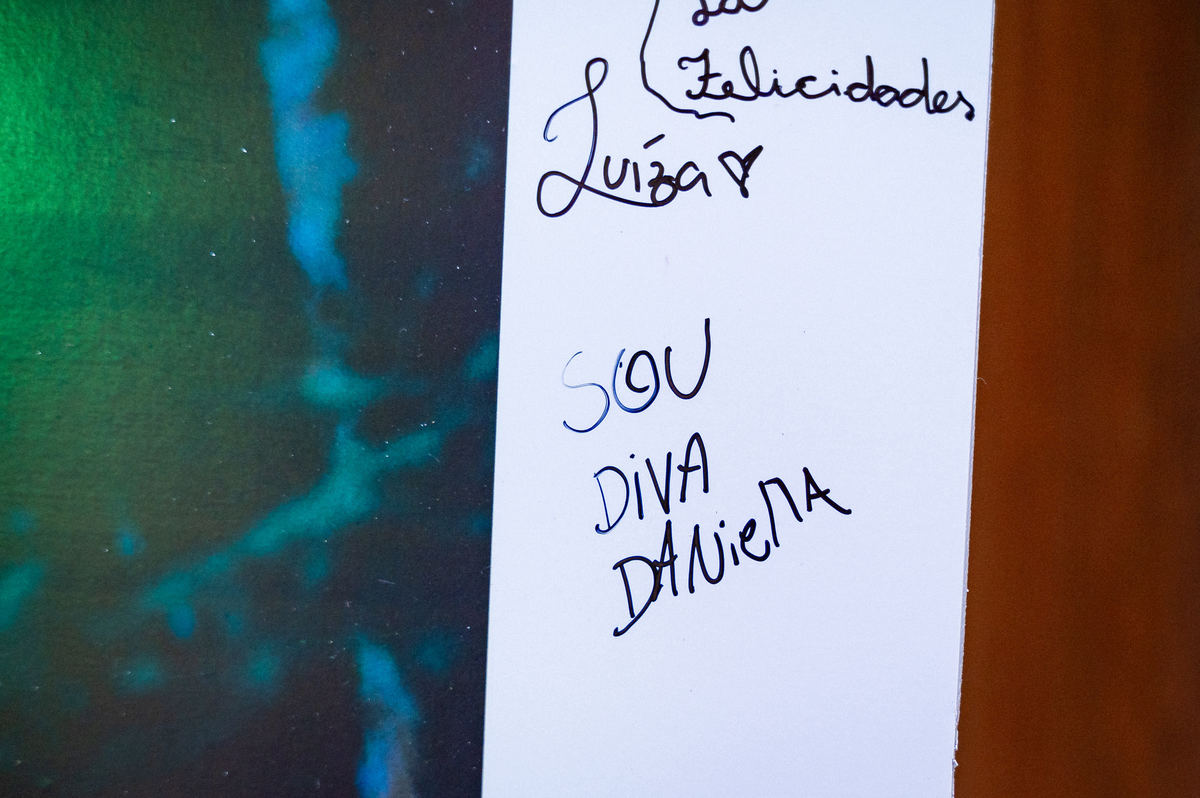 Felicidades
Luíza
SOU
DIVA
DANiellA